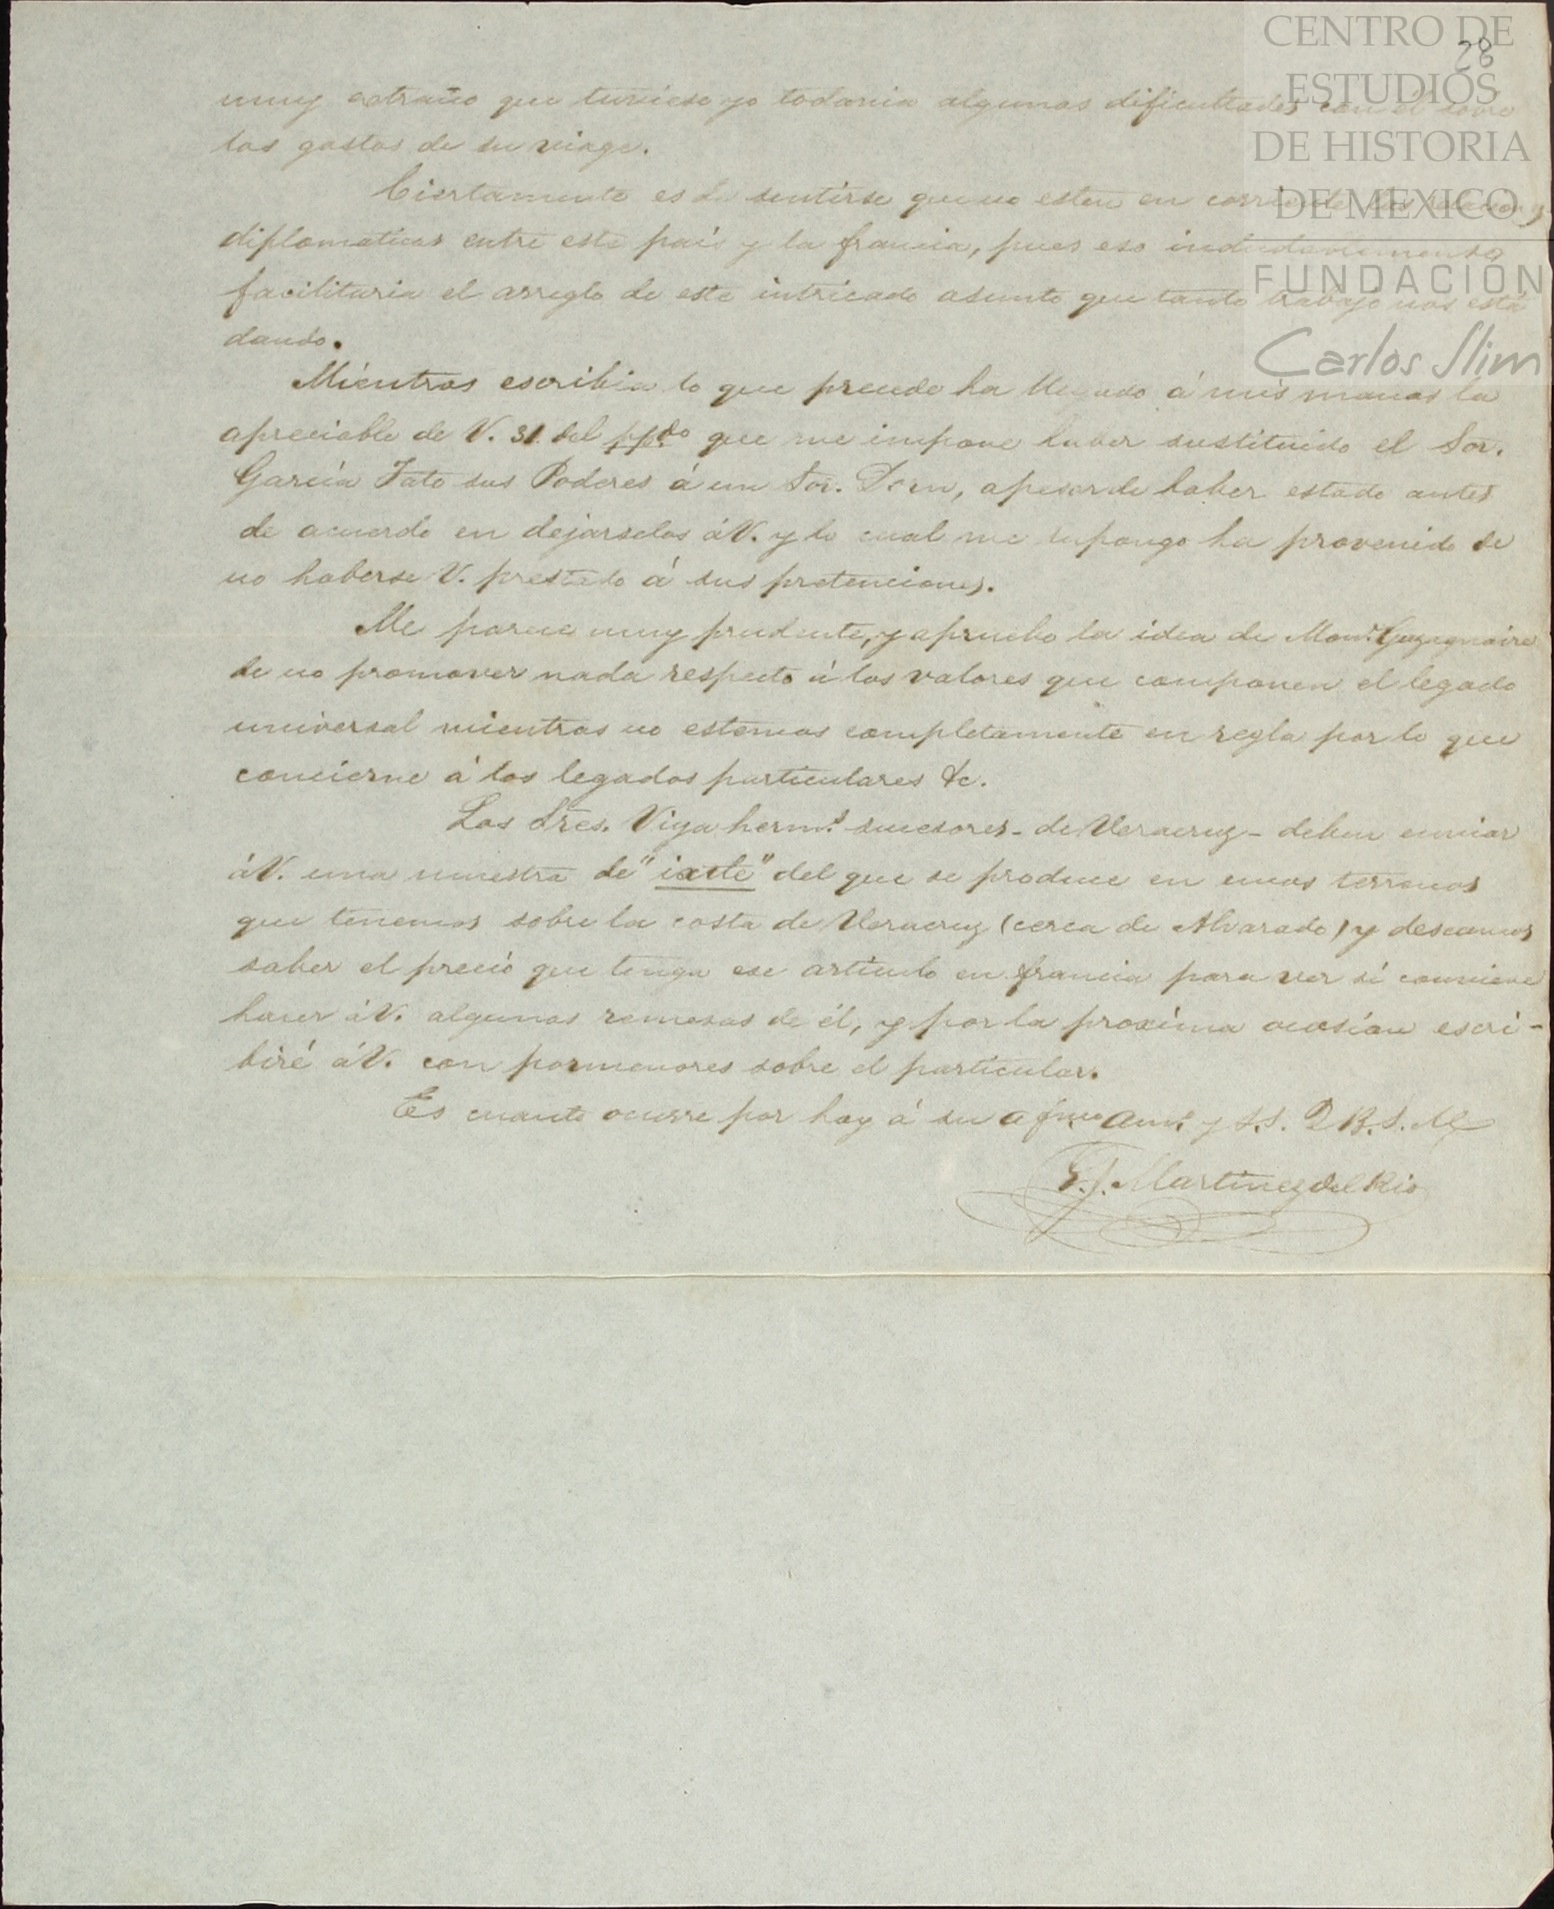 CENTRO DE
ESTUDIOS
DE HISTORIA
DE MEXICO
FUNDACIÓN
Carlos Slim
28
muy extraño que tuviese yo todavia algunas dificultades con él sobre
los gastos de su viage.
Ciertamente es de sentirse que no esten en corriente las relaciones
diplomaticas entre este país y la francia, pues eso indudablemente
facilitaria el arreglo de este intricado asunto que tanto trabajo nos está
dando.
Mientras escribia lo que precede ha llegado á mis manos la
apreciable de V. 31 del ppdo que me impone haber sustituido el Sor.
García Tato sus Poderes á un Sor. apesar de haber estado antes
de acuerdo en dejarselos á V. y lo cual me supongo ha provenido de
no haberse V. prestado á sus pretenciones.
Me parece muy prudente, y apruebo la idea de Monr.
de no promover nada respecto á los valores que componen el legado
universal mientras no estemos completamente en regla por lo que
concierne á los legados particulares &c.
Los Sres. Viya hermos. sucesores - de Veracruz - deben enviar
á V. una muestra de "ixtle" del que se produce en unos terrenos
que tenemos sobre la costa de Veracruz (cerca de Alvarado) y deseamos
saber el precio que tenga ese artículo en francia para ver si conviene
hacer á V. algunas remesas de él, y por la proxima ocasion escri-
biré á V. con pormenores sobre el particular.
Es cuanto ocurre por hoy á su afmo. amo. y S.S. Q B.S.M
Martinez del Rio